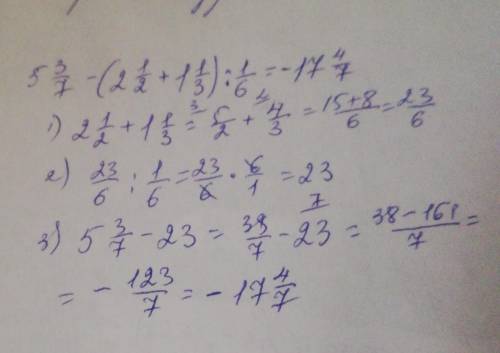 5 3/7 - (2 1/2 + 1 1/3) : 1/6 = -17 4/7
1) 2 1/2 + 1 1/3 = 5/2 + 4/3 = (15+8)/6 = 23/6
2) 23/6 : 1/6 = 23/6 · 6/1 = 23
3) 5 3/7 - 23 = 38/7 - 23 = (38-161)/7 =
= - 123/7 = - 17 4/7